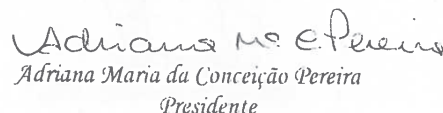 Adriana Mª C Pereira
Adriana Maria da Conceição Pereira
Presidente